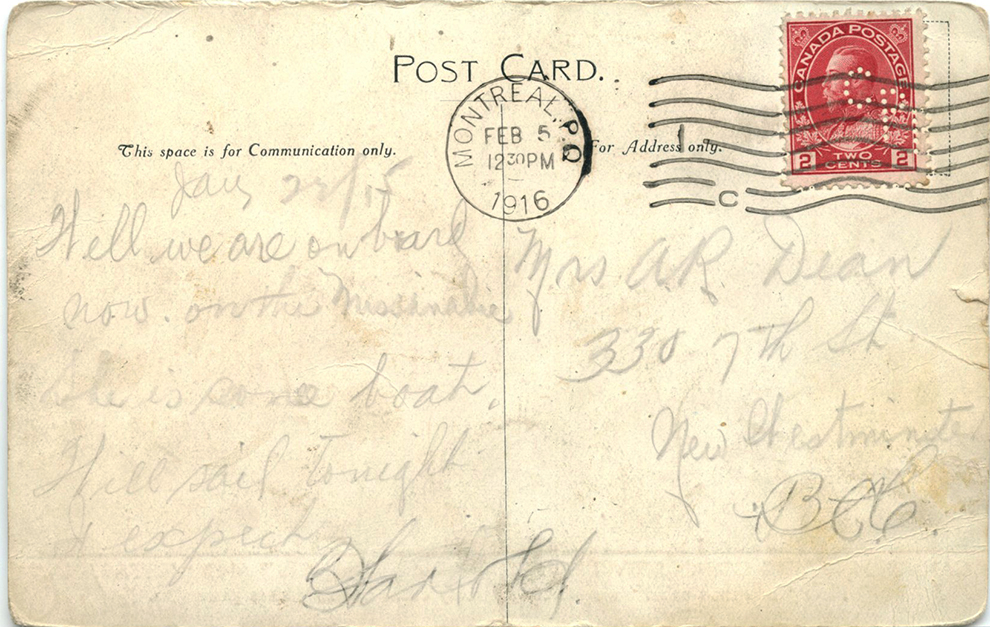 POST CARD.
MONTREAL, P.Q.
FEB 5
12 30 PM
1916
C
CANADA POSTAGE
2 TWO CENTS 2
This space is for Communication only.
For Address only.
Jany 22/15
Well we are on board
now. on the Missinabie
She is some boat,
Will sail tonight
I expect
Harold.
Mrs A.R. Dean
330 7th St
New Westminster
B.C.